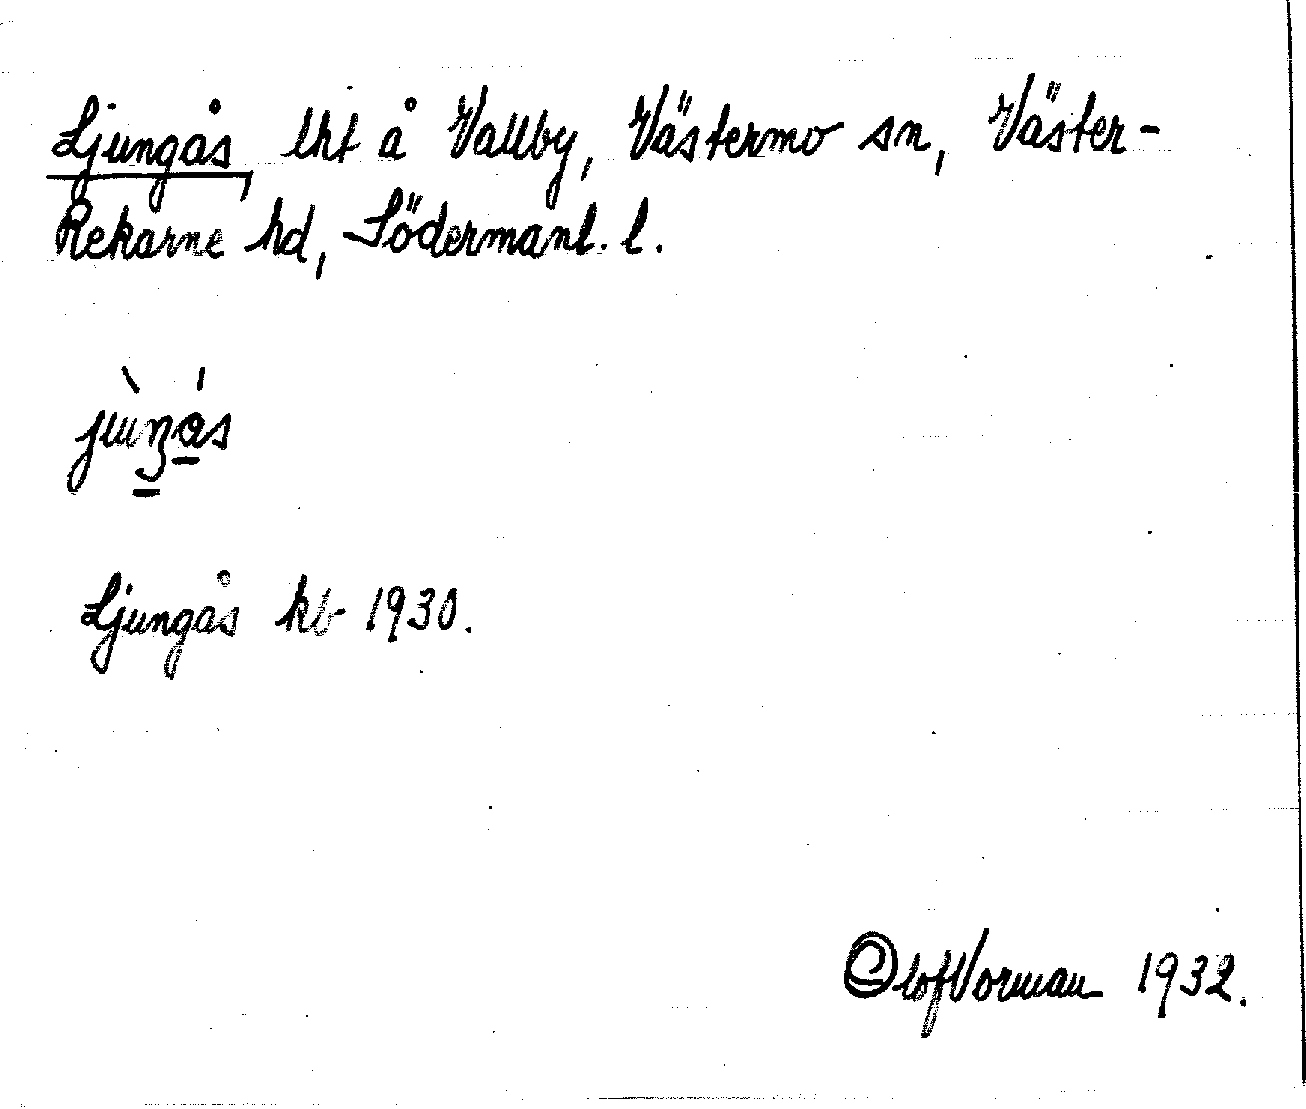 Ljungås, lht å Vallby, Västermo sn, Väster-
Rekarne hd, Södermanl. l.
jùŋás
Ljungås kb 1930.
Olof Vorman 1932.